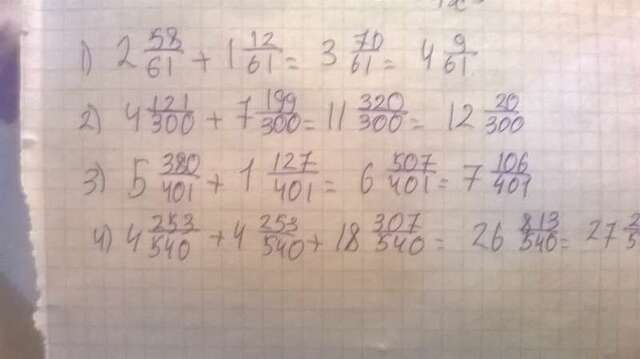 1) 2 58/61 + 1 12/61 = 3 70/61 = 4 9/61
2) 4 121/300 + 7 199/300 = 11 320/300 = 12 20/300
3) 5 380/401 + 1 127/401 = 6 507/401 = 7 106/401
4) 4 253/540 + 4 253/540 + 18 307/540 = 26 813/540 = 27